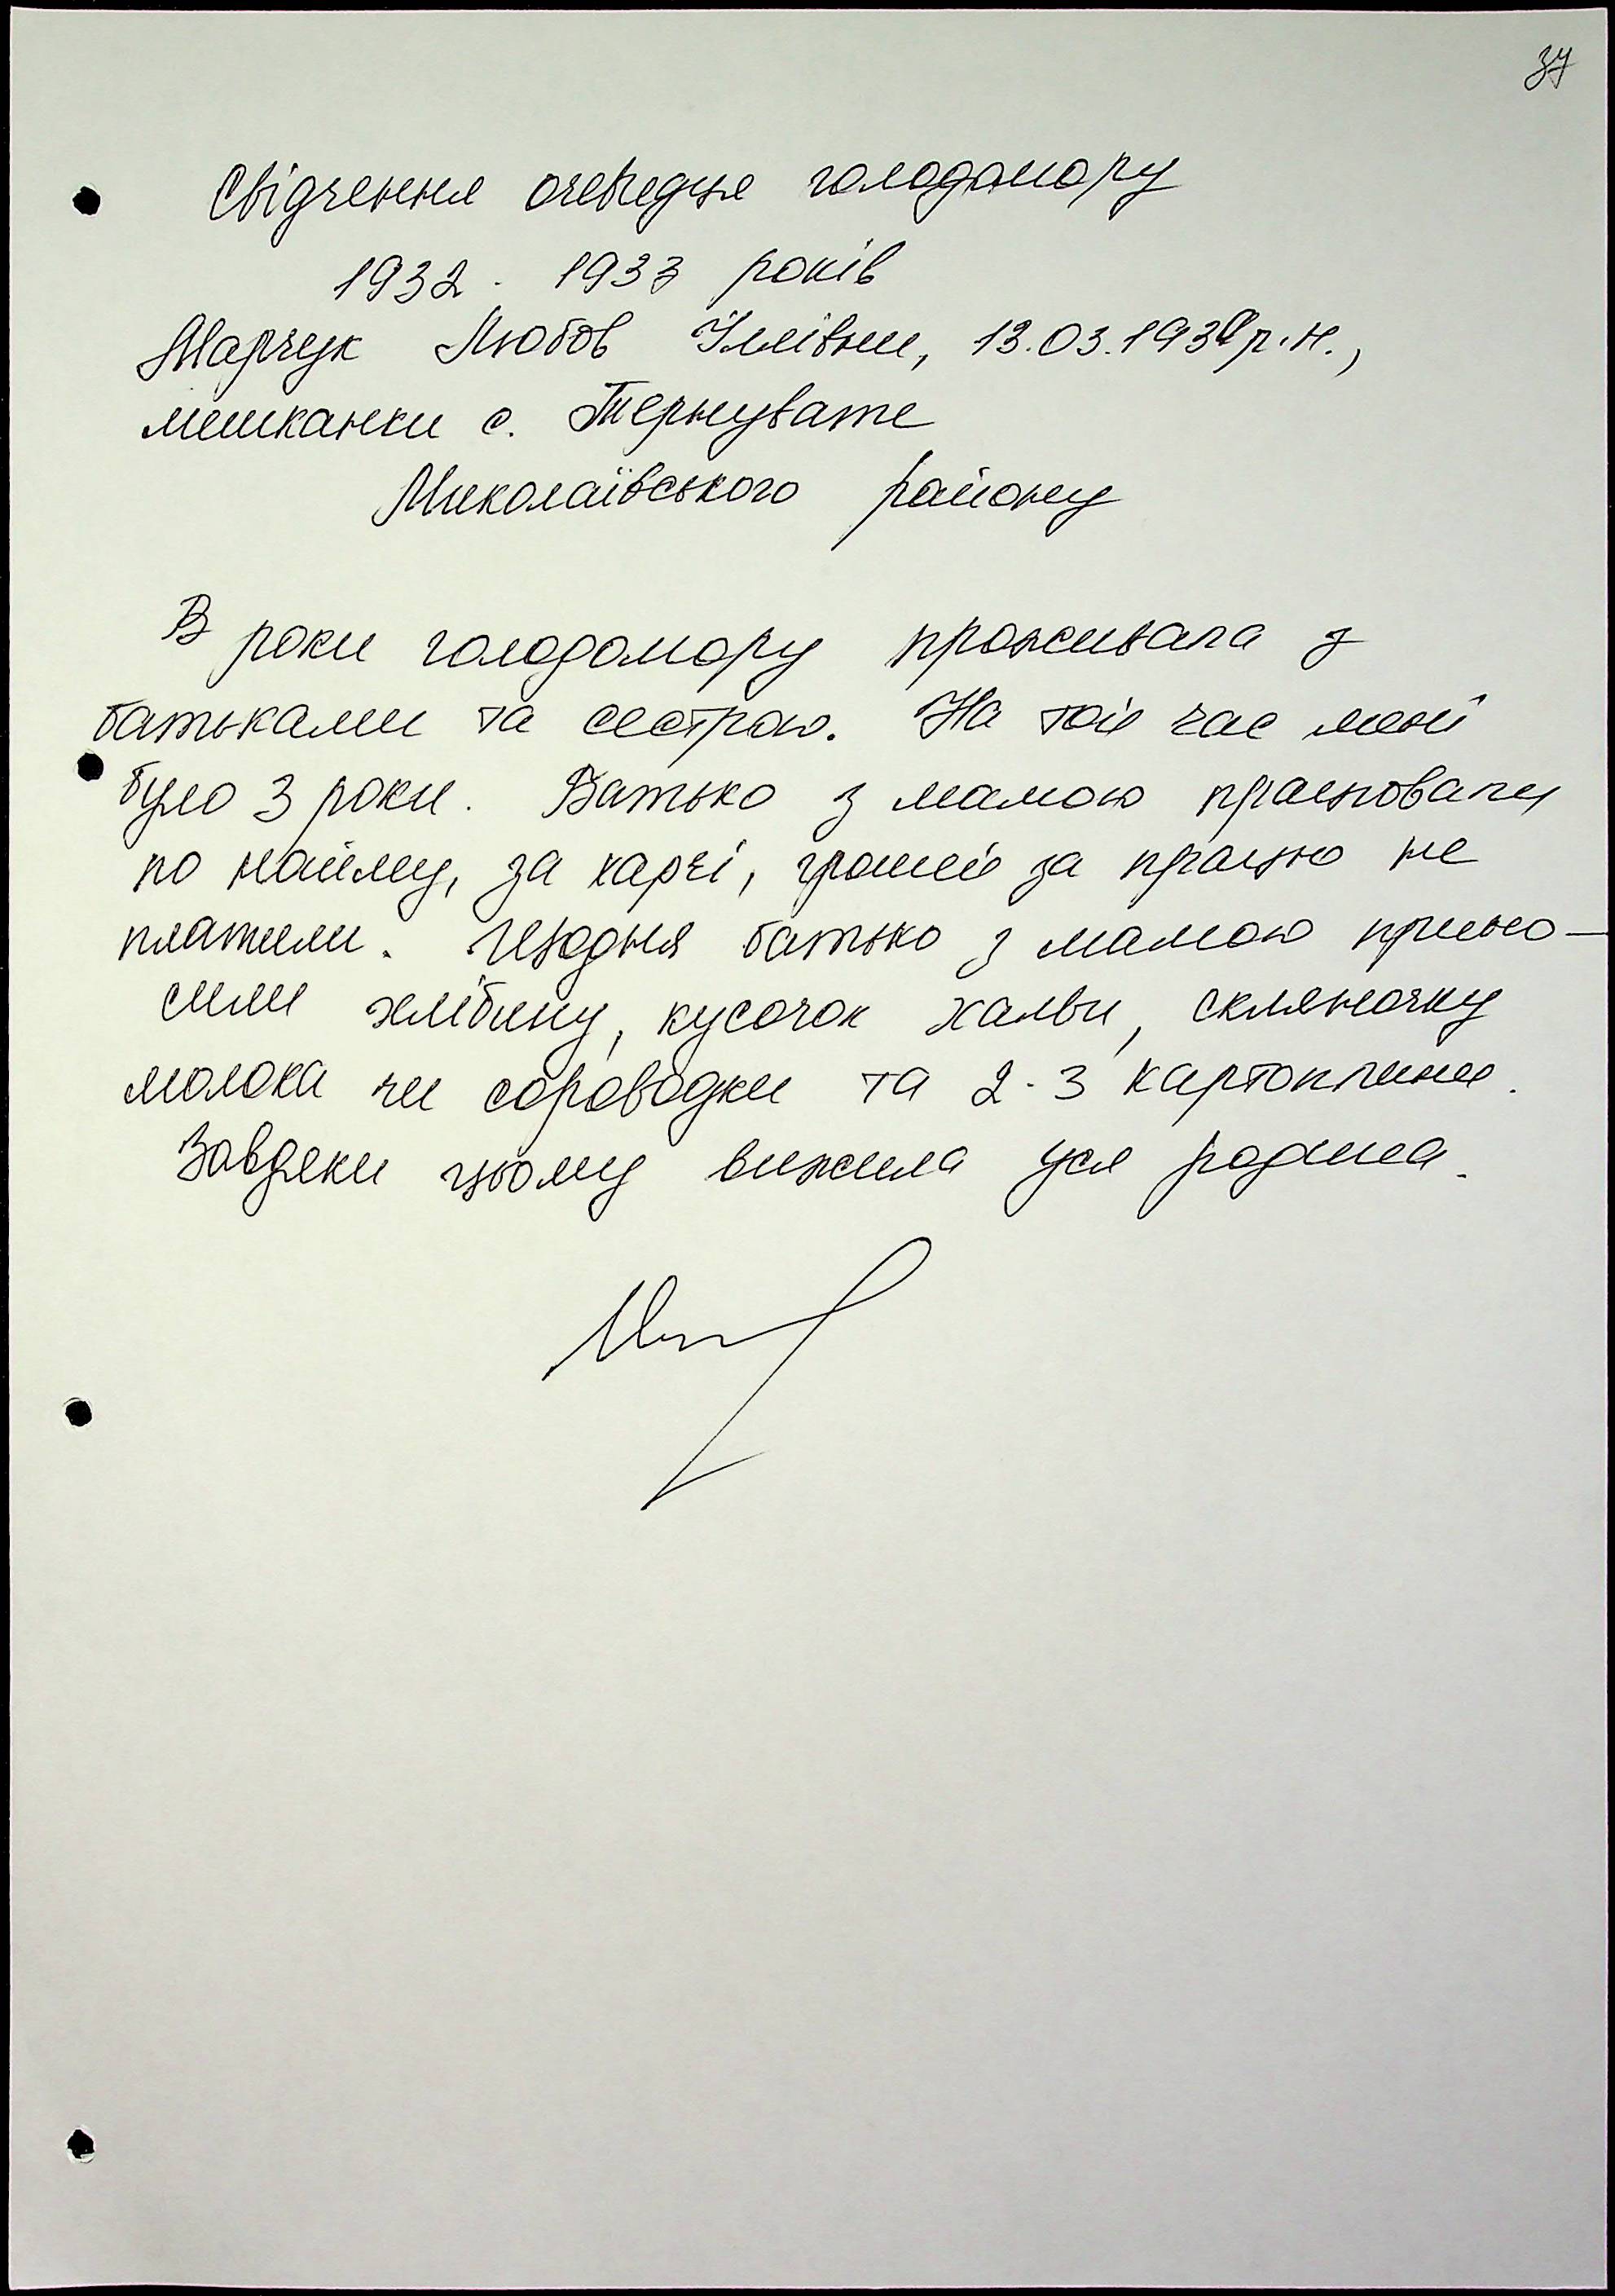 37
Свідчення очевидця голодомору
1932 - 1933 років
Марчук Любов Іллівни, 13.03.1930 р.н.,
мешканки с. Тернувате
Миколаївського району
В роки голодомору проживала з
батьками та сестрою. На той час мені
було 3 роки. Батько з мамою працювали
по найму, за харчі, грошей за працю не
платили. Щодня батько з мамою прино-
сили хлібину, кусочок халви, скляночку
молока чи сороводки та 2-3 картоплини.
Завдяки цьому вижила уся родина.